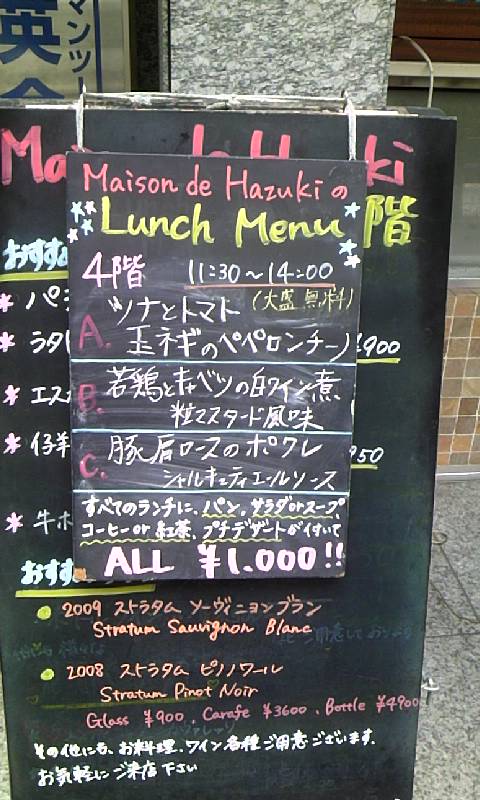 英会
マンツー
Ma
ki
階
Maison de Hazukiの
Lunch Menu
4階 11:30～14:00
(大盛無料)
A. ツナとトマト
玉ネギのペペロンチーノ
B. 若鶏とキャベツの白ワイン煮
粒マスタード風味
C. 豚肩ロースのポワレ
シャルキュティエールソース
すべてのランチに、パン、サラダorスープ、
コーヒーor紅茶、プチデザートが付いて
ALL ¥1,000!!
おすす
* パ
* ラタ
¥900
* エス
* 仔羊
950
* 牛ホ
おすす
2009 ストラタム ソーヴィニヨンブラン
Stratum Sauvignon Blanc
2008 ストラタム ピノノワール
Stratum Pinot Noir
Glass ¥900、Carafe ¥3600、Bottle ¥4900
その他にも、お料理、ワイン各種ご用意ございます。
お気軽にご来店下さい